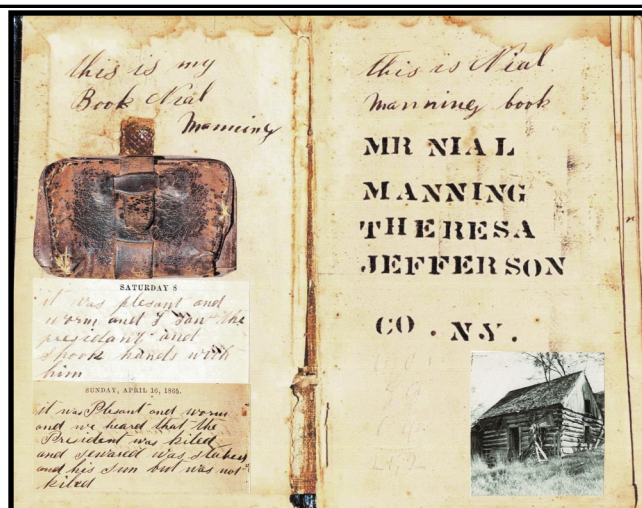 this is my
Book Nial
Manning
SATURDAY 8
it was plesant and
worm and I saw the
presidant and
shook hands with
him
SUNDAY, APRIL 16, 1865.
it was Plesant and worm
and we heard that the
President was kiled
and seward was stabed
and his sun but was not
kiled
this is Nial
Manning book
MR NIAL
MANNING
THERESA
JEFFERSON
CO. N.Y.